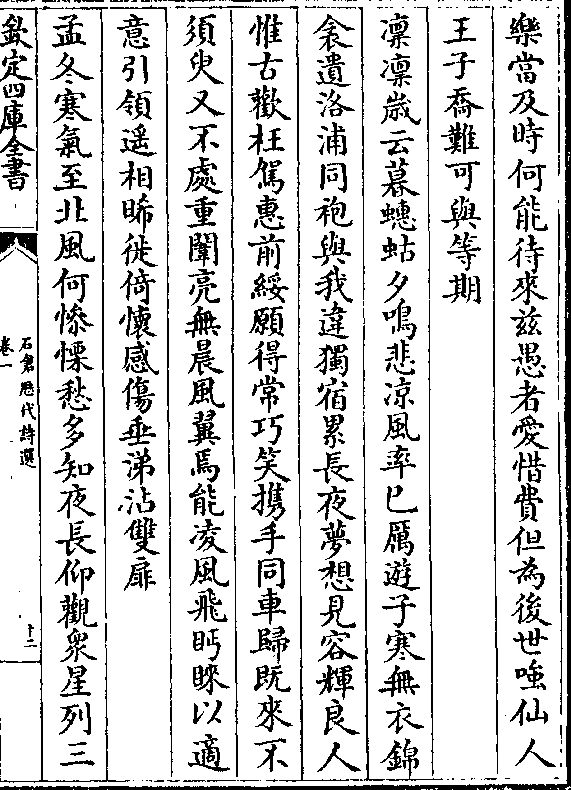 樂當及時何能待來兹愚者愛惜費但為後世嗤仙人
王子喬難可與等期
凜凜歲云暮螻蛄夕鳴悲凉風率已厲遊子寒無衣錦
衾遺洛浦同袍與我違獨宿累長夜夢想見容輝良人
惟古歡枉駕惠前綏願得常巧笑攜手同車歸既來不
須臾又不處重闈亮無晨風翼焉能凌風飛眄睞以適
意引領遥相睎徙倚懷感傷垂涕沾雙扉
孟冬寒氣至北風何慘慄愁多知夜長仰觀衆星列三
欽定四庫全書
石倉歷代詩選
卷一
十二